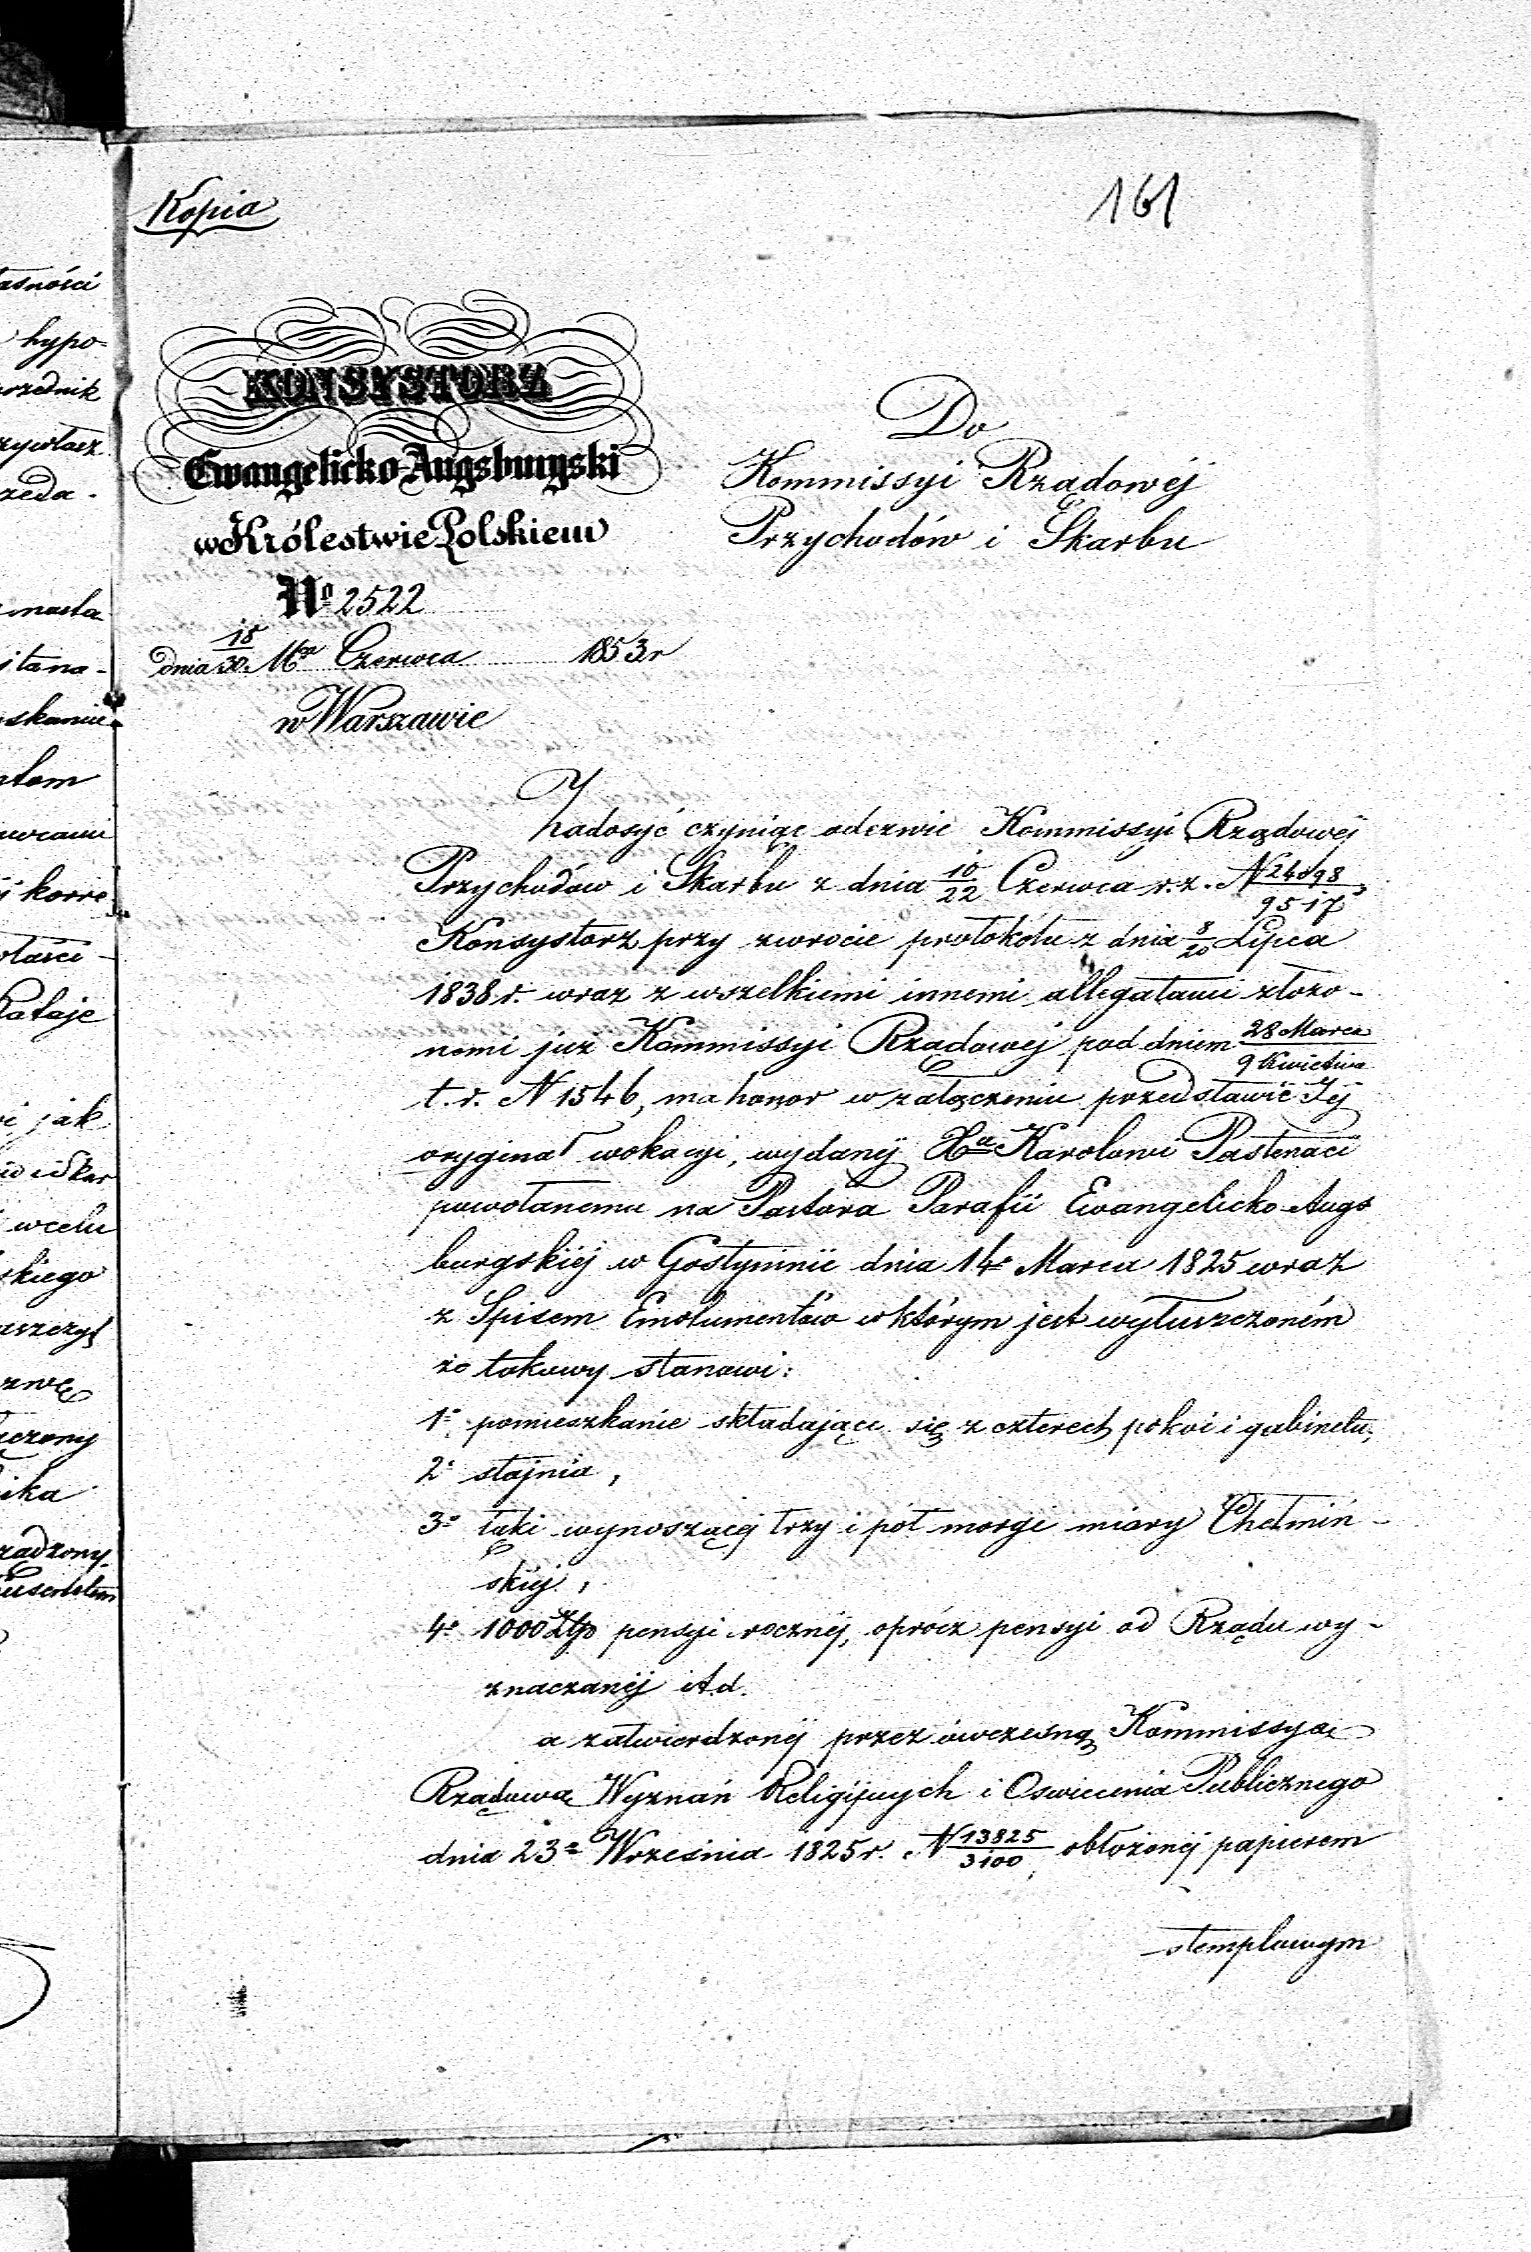 asności
hypo-
rzednik
zywłasz
zeda-
masła
itana-
skanie
ntom
korre
Rataje
jak
wcelu
skiego
aszczył
zwę
ęczony
ika
radzony
Kopia
161
KONSYSTORZ
Ewangelicko-Augsburgski
w Królestwie Polskiem
No 2522
dnia 18/30 Mca Czerwca 1853r
w Warszawie
Do
Kommissyi Rządowéj
Przychodów i Skarbu
Zadosyć czyniąc odezwie Kommissyi Rządowéj
Przychodów i Skarbu z dnia 10/22 Czerwca r.z. N 24898/9517,
Konsystorz przy zwrocie protokołu z dnia 8/20 Lipca
1838 r. wraz z wszelkiemi innemi allegatami złożo-
nemi już Kommissyi Rządowej pod dniem 28 Marca/9 Kwietnia
t.r. N 1546, ma honor w załączeniu przedstawić Jéj
oryginał wokacyi, wydanéj Xu Karolowi Pastenaci
powołanemu na Pastora Parafii Ewangelicko Augs
burgskiéj w Gostyninie dnia 14o Marca 1825 wraz
z Spisem Emolumentów w którym jest wyłuszczoném
że takowy stanowi:
1o pomieszkanie składające się z czterech pokoi i gabinetu,
2o stajnia,
3o łąki wynoszącéj trzy i pół morgi miary Chełmiń-
skiéj,
4o 1000 Złp pensyi rocznéj, oprócz pensyi od Rządu wy-
znaczanéj i t.d.
a zatwierdzonéj przez ówczesną Kommissyą
Rządową Wyznań Religijnych i Oswiecenia Publicznego
dnia 23o Września 1825 r. N 13825/3100, obłożonéj papierem
stemplowym